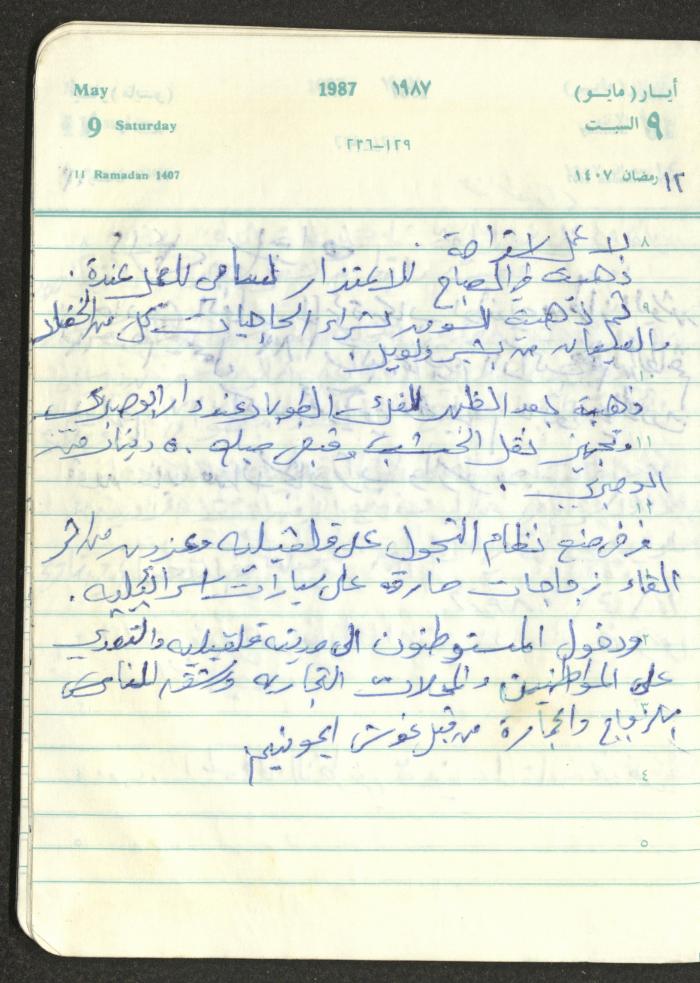 May 1987 ١٩٨٧ أيـار (مايـو)
9 Saturday ٩ السبت
١٢٩-٢٣٦
11 Ramadan 1407 ١٢ رمضان ١٤٠٧
لا عمل استراحة .
ذهبت في الصباح للاعتذار لسامي للعمل عندة .
ثم ذهبت السوق لشراء الحاجيات كل من الخضار
والطيبات من بشير ولويل.
ذهبة بعد الظهر لفك الطوبار عند دار ابو صبري
وتجهيز نقل الخشب وقبض مبلغ ٥٠ دينار من
ابو صبري .
فرض منع نظام التجول على قلقيليه وعزون من اثر
القاء زجاجات حارقه على سيارات اسرائيليه .
ودخول المستوطنون الى مدينة قلقيليه والتعدي
على المواطنين والمحلات التجاريه
بالزجاج والحجارة من قبل غوش ايمونيم.
٨
٩
١٠
١١
١٢
٢
٣
٤
٥